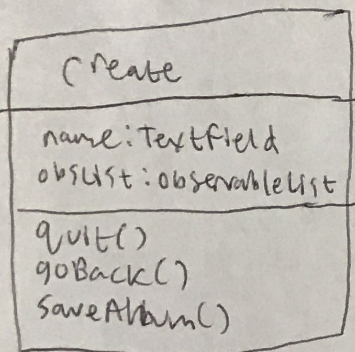 Create
name: Textfield
obsList: observableList
quit()
goBack()
saveAlbum()